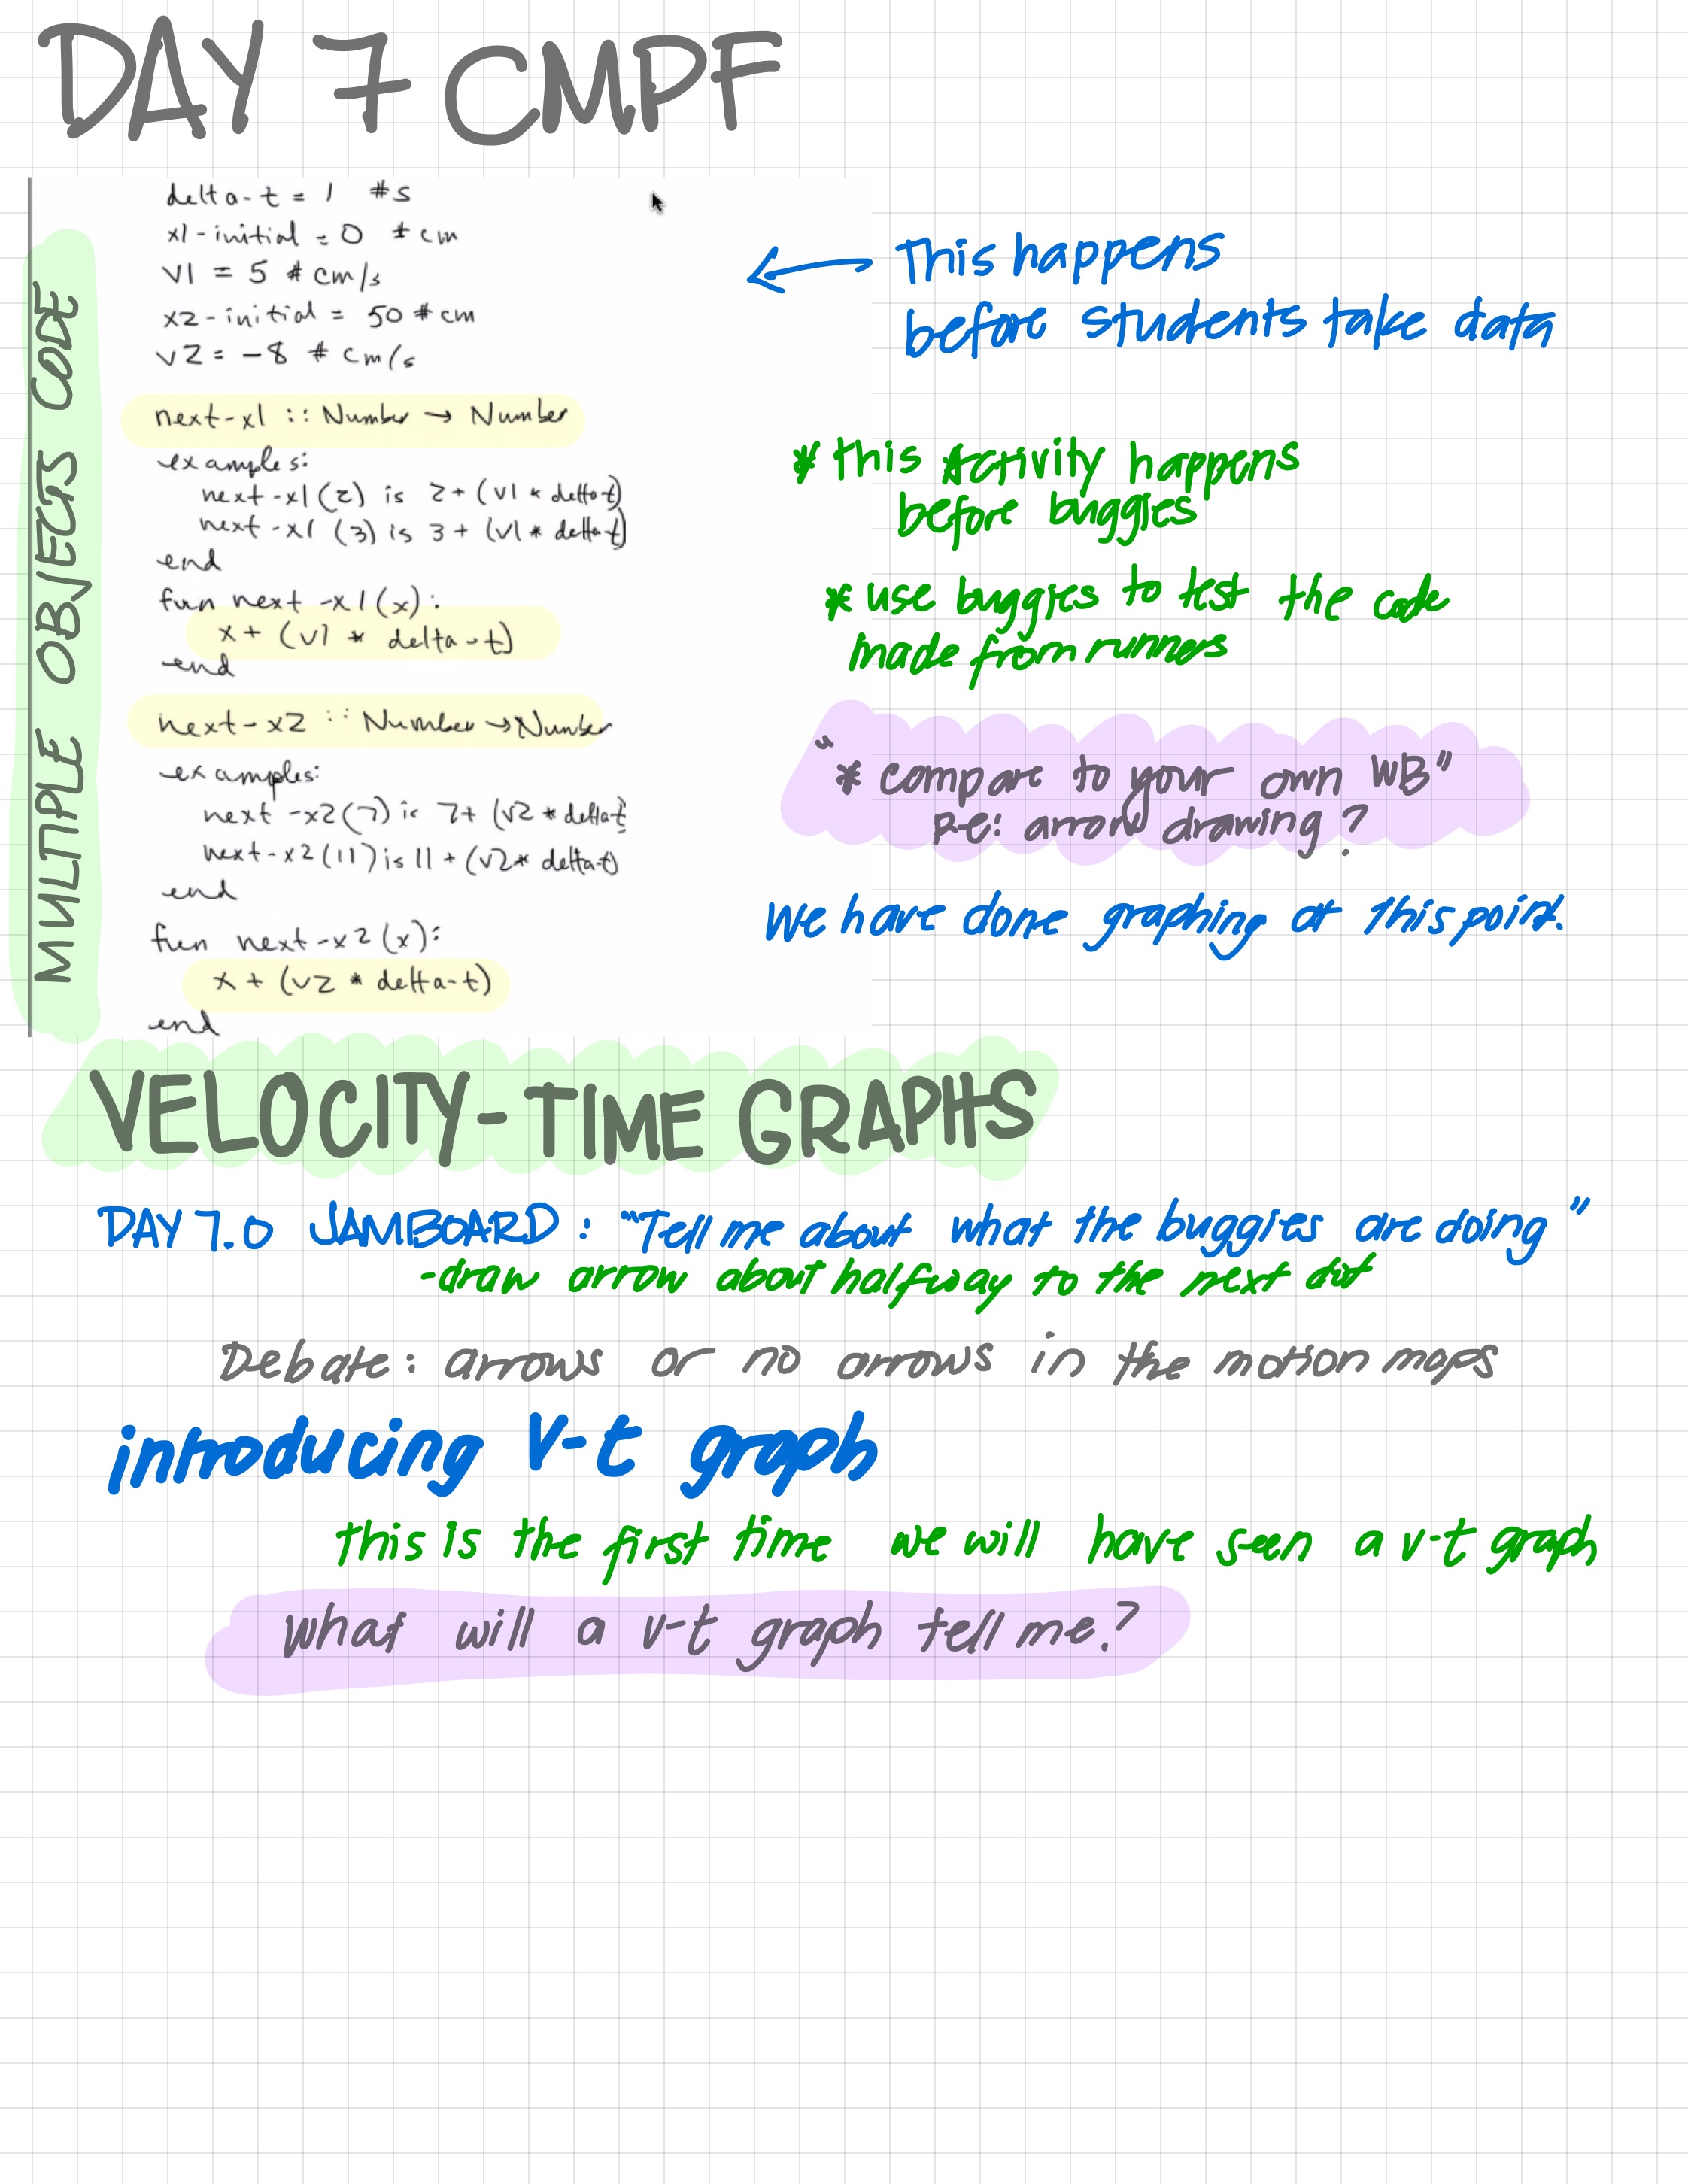 DAY 7 CMPF
MULTIPLE OBJECTS CODE
delta-t = 1 #s
x1-initial = 0 #cm
v1 = 5 # cm/s
x2-initial = 50 #cm
v2 = -8 # cm/s
next-x1 :: Number → Number
examples:
next-x1(2) is 2+ (v1 * delta-t)
next-x1 (3) is 3 + (v1 * delta-t)
end
fun next-x1(x):
x + (v1 * delta-t)
end
next-x2 :: Number → Number
examples:
next-x2(7) is 7+ (v2 * delta-t)
next-x2(11) is 11 + (v2 * delta-t)
end
fun next-x2(x):
x + (v2 * delta-t)
end
← This happens
before students take data
* this Activity happens
before buggies
* use buggies to test the code
made from runners
"* compare to your own WB"
re: arrow drawing?
We have done graphing at this point.
VELOCITY-TIME GRAPHS
DAY 7.0 JAMBOARD: "Tell me about what the buggies are doing"
-draw arrow about halfway to the next dot
Debate: arrows or no arrows in the motion maps
introducing v-t graph
this is the first time we will have seen a v-t graph
what will a v-t graph tell me?